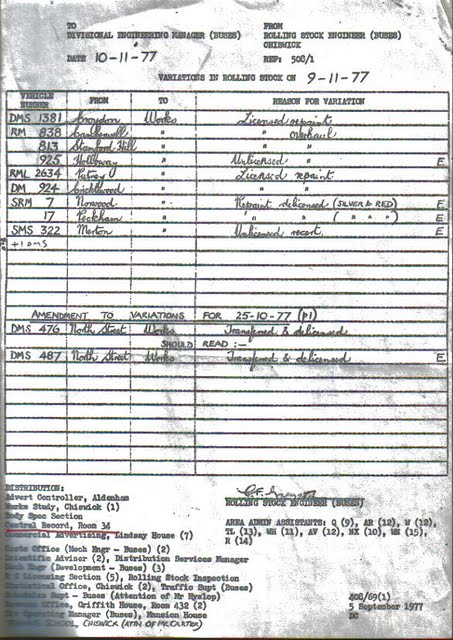 TO FROM
DIVISIONAL ENGINEERING MANAGER (BUSES) ROLLING STOCK ENGINEER (BUSES)
CHISWICK
DATE 10-11-77 REF: 508/1
VARIATIONS IN ROLLING STOCK ON 9-11-77
VEHICLE NUMBER FROM TO REASON FOR VARIATION
DMS 1381 Croydon Works Licensed repaint
RM 838 Camberwell " " overhaul
813 Stamford Hill " " "
925 Holloway " Unlicensed " E
RML 2634 Putney " Licensed repaint
DM 924 Cricklewood " " "
SRM 7 Norwood " Repaint delicensed (SILVER & RED) E
17 Peckham " " " ( " " ) E
SMS 322 Merton " Unlicensed recert. E
AMENDMENT TO VARIATIONS FOR 25-10-77 (p1)
DMS 476 North Street Works Transferred & delicensed
SHOULD READ :-
DMS 487 North Street Works Transferred & delicensed E
DISTRIBUTION:
Advert Controller, Aldenham
Works Study, Chiswick (1)
Body Spec Section
Central Record, Room 34
Commercial Advertising, Lindsay House (7)
Costs Office (Mech Engr - Buses) (2)
Scientific Adviser (2), Distribution Services Manager
Mech Engr (Development - Buses) (3)
R S Licensing Section (5), Rolling Stock Inspection
Office, Chiswick (2), Traffic Supt (Buses)
Schedules Supt - Buses (Attention of Mr Hyslop)
Office, Griffith House, Room 432 (2)
Operating Manager (Buses), Mansion House
SCHOOL, CHISWICK (ATTN OF MR CARTER)
ROLLING STOCK ENGINEER (BUSES)
AREA ADMIN ASSISTANTS: Q (9), AR (12), W (12),
TL (13), WH (11), AV (12), HX (10), WM (15),
R (14)
408/69(1)
5 September 1977
DC